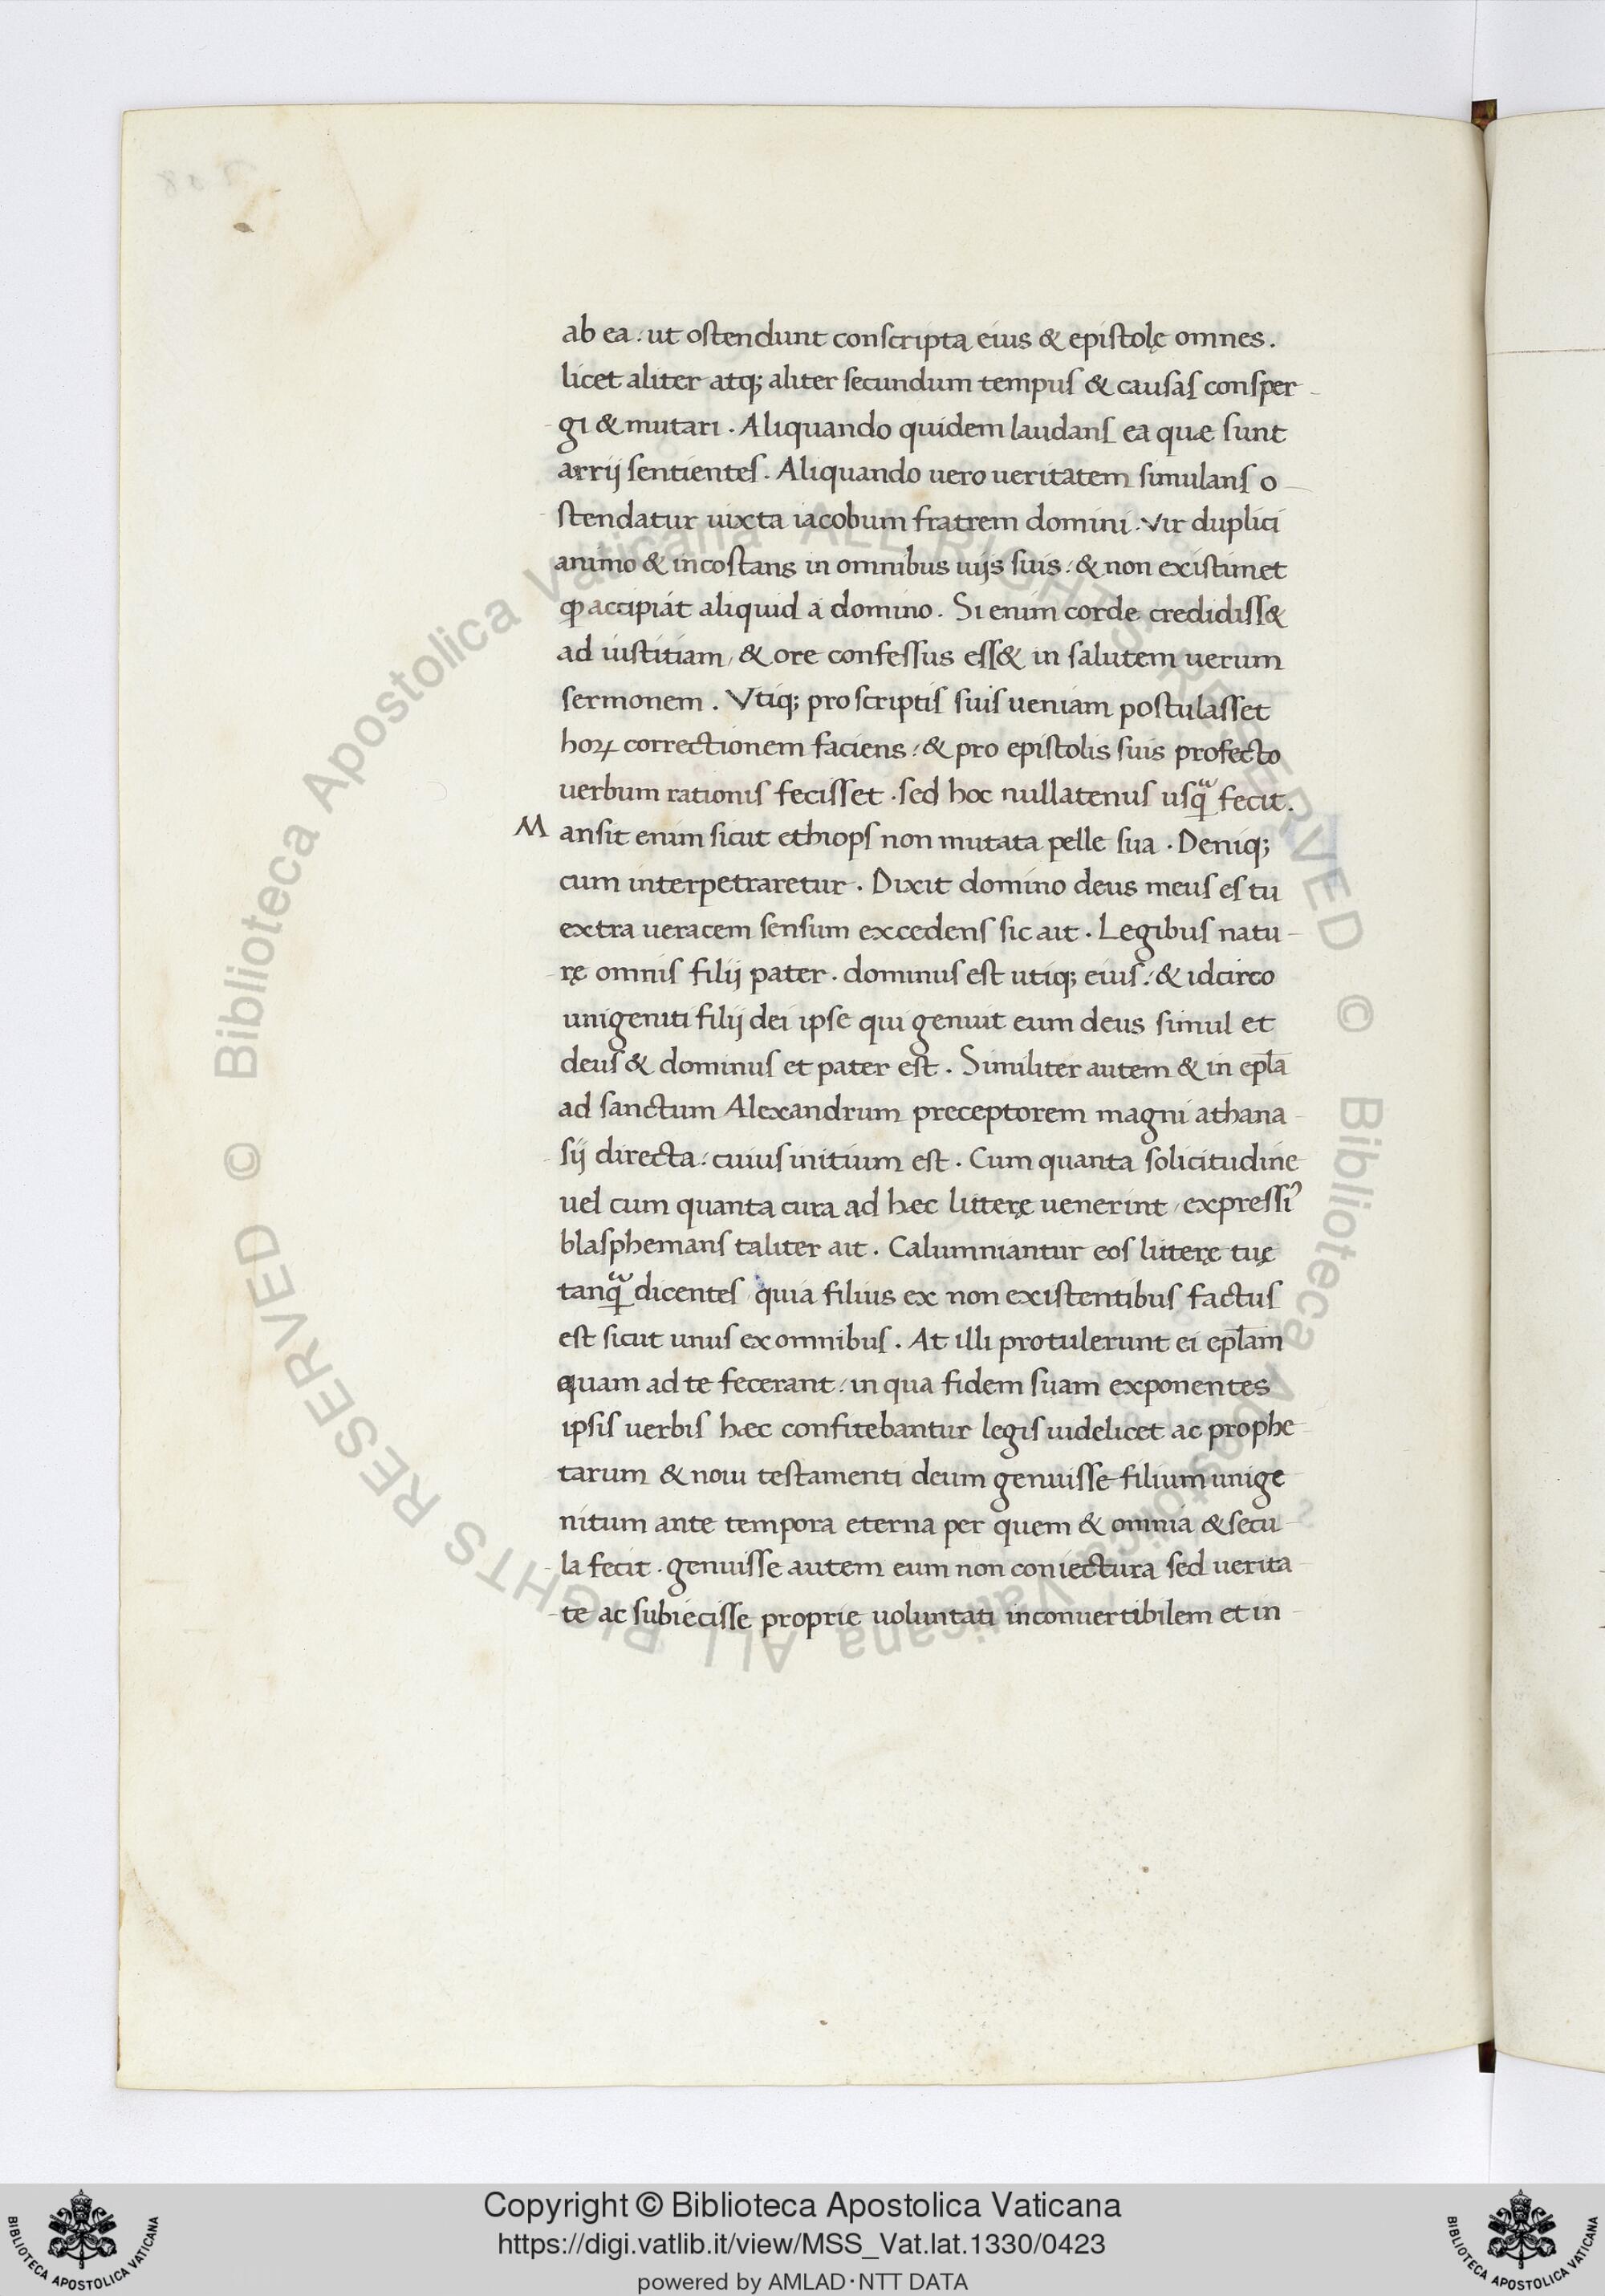 ab ea : ut ostendunt conscripta eius & epistolę omnes .
licet aliter atq; aliter secundum tempus & causas consper
gi & mutari . Aliquando quidem laudans ea quæ sunt
arrij sentientes . Aliquando uero ueritatem simulans o
stendatur iuxta iacobum fratrem domini . Vir duplici
animo & incostans in omnibus uijs suis : & non existimet
ꝙ accipiat aliquid a domino . Si enim corde credidiss&
ad iustitiam / & ore confessus ess& in salutem uerum
sermonem . Vtiq; pro scriptis suis ueniam postulasset
hoꝝ correctionem faciens : & pro epistolis suis profecto
uerbum rationis fecisset . sed hoc nullatenus usqᷓ fecit .
Mansit enim sicut ethiops non mutata pelle sua . Deniq;
cum interpetraretur . Dixit domino deus meus es tu
extra ueracem sensum excedens sic ait . Legibus natu
rę omnis filij pater . dominus est utiq; eius : & idcirco
unigeniti filij dei ipse qui genuit eum deus simul et
deus & dominus et pater est . Similiter autem & in epl̄a
ad sanctum Alexandrum preceptorem magni athana
sij directa : cuius initium est . Cum quanta solicitudine
uel cum quanta cura ad hæc litterę uenerint / expressiꝰ
blasphemans taliter ait . Calumniantur eos litterę tuę
tanqᷓ dicentes quia filius ex non existentibus factus
est sicut unus ex omnibus . At illi protulerunt ei epl̄am
quam ad te fecerant : in qua fidem suam exponentes
ipsis uerbis hæc confitebantur legis uidelicet ac prophe
tarum & noui testamenti deum genuisse filium unige
nitum ante tempora eterna per quem & omnia & secu
la fecit . genuisse autem eum non coniectura sed uerita
te ac subiecisse proprie uoluntati inconuertibilem et in
© Biblioteca Apostolica Vaticana ALL RIGHTS RESERVED © Biblioteca Apostolica Vaticana ALL RIGHTS RESERVED
Copyright © Biblioteca Apostolica Vaticana
https://digi.vatlib.it/view/MSS_Vat.lat.1330/0423
powered by AMLAD·NTT DATA
BIBLIOTECA APOSTOLICA VATICANA
BIBLIOTECA APOSTOLICA VATICANA